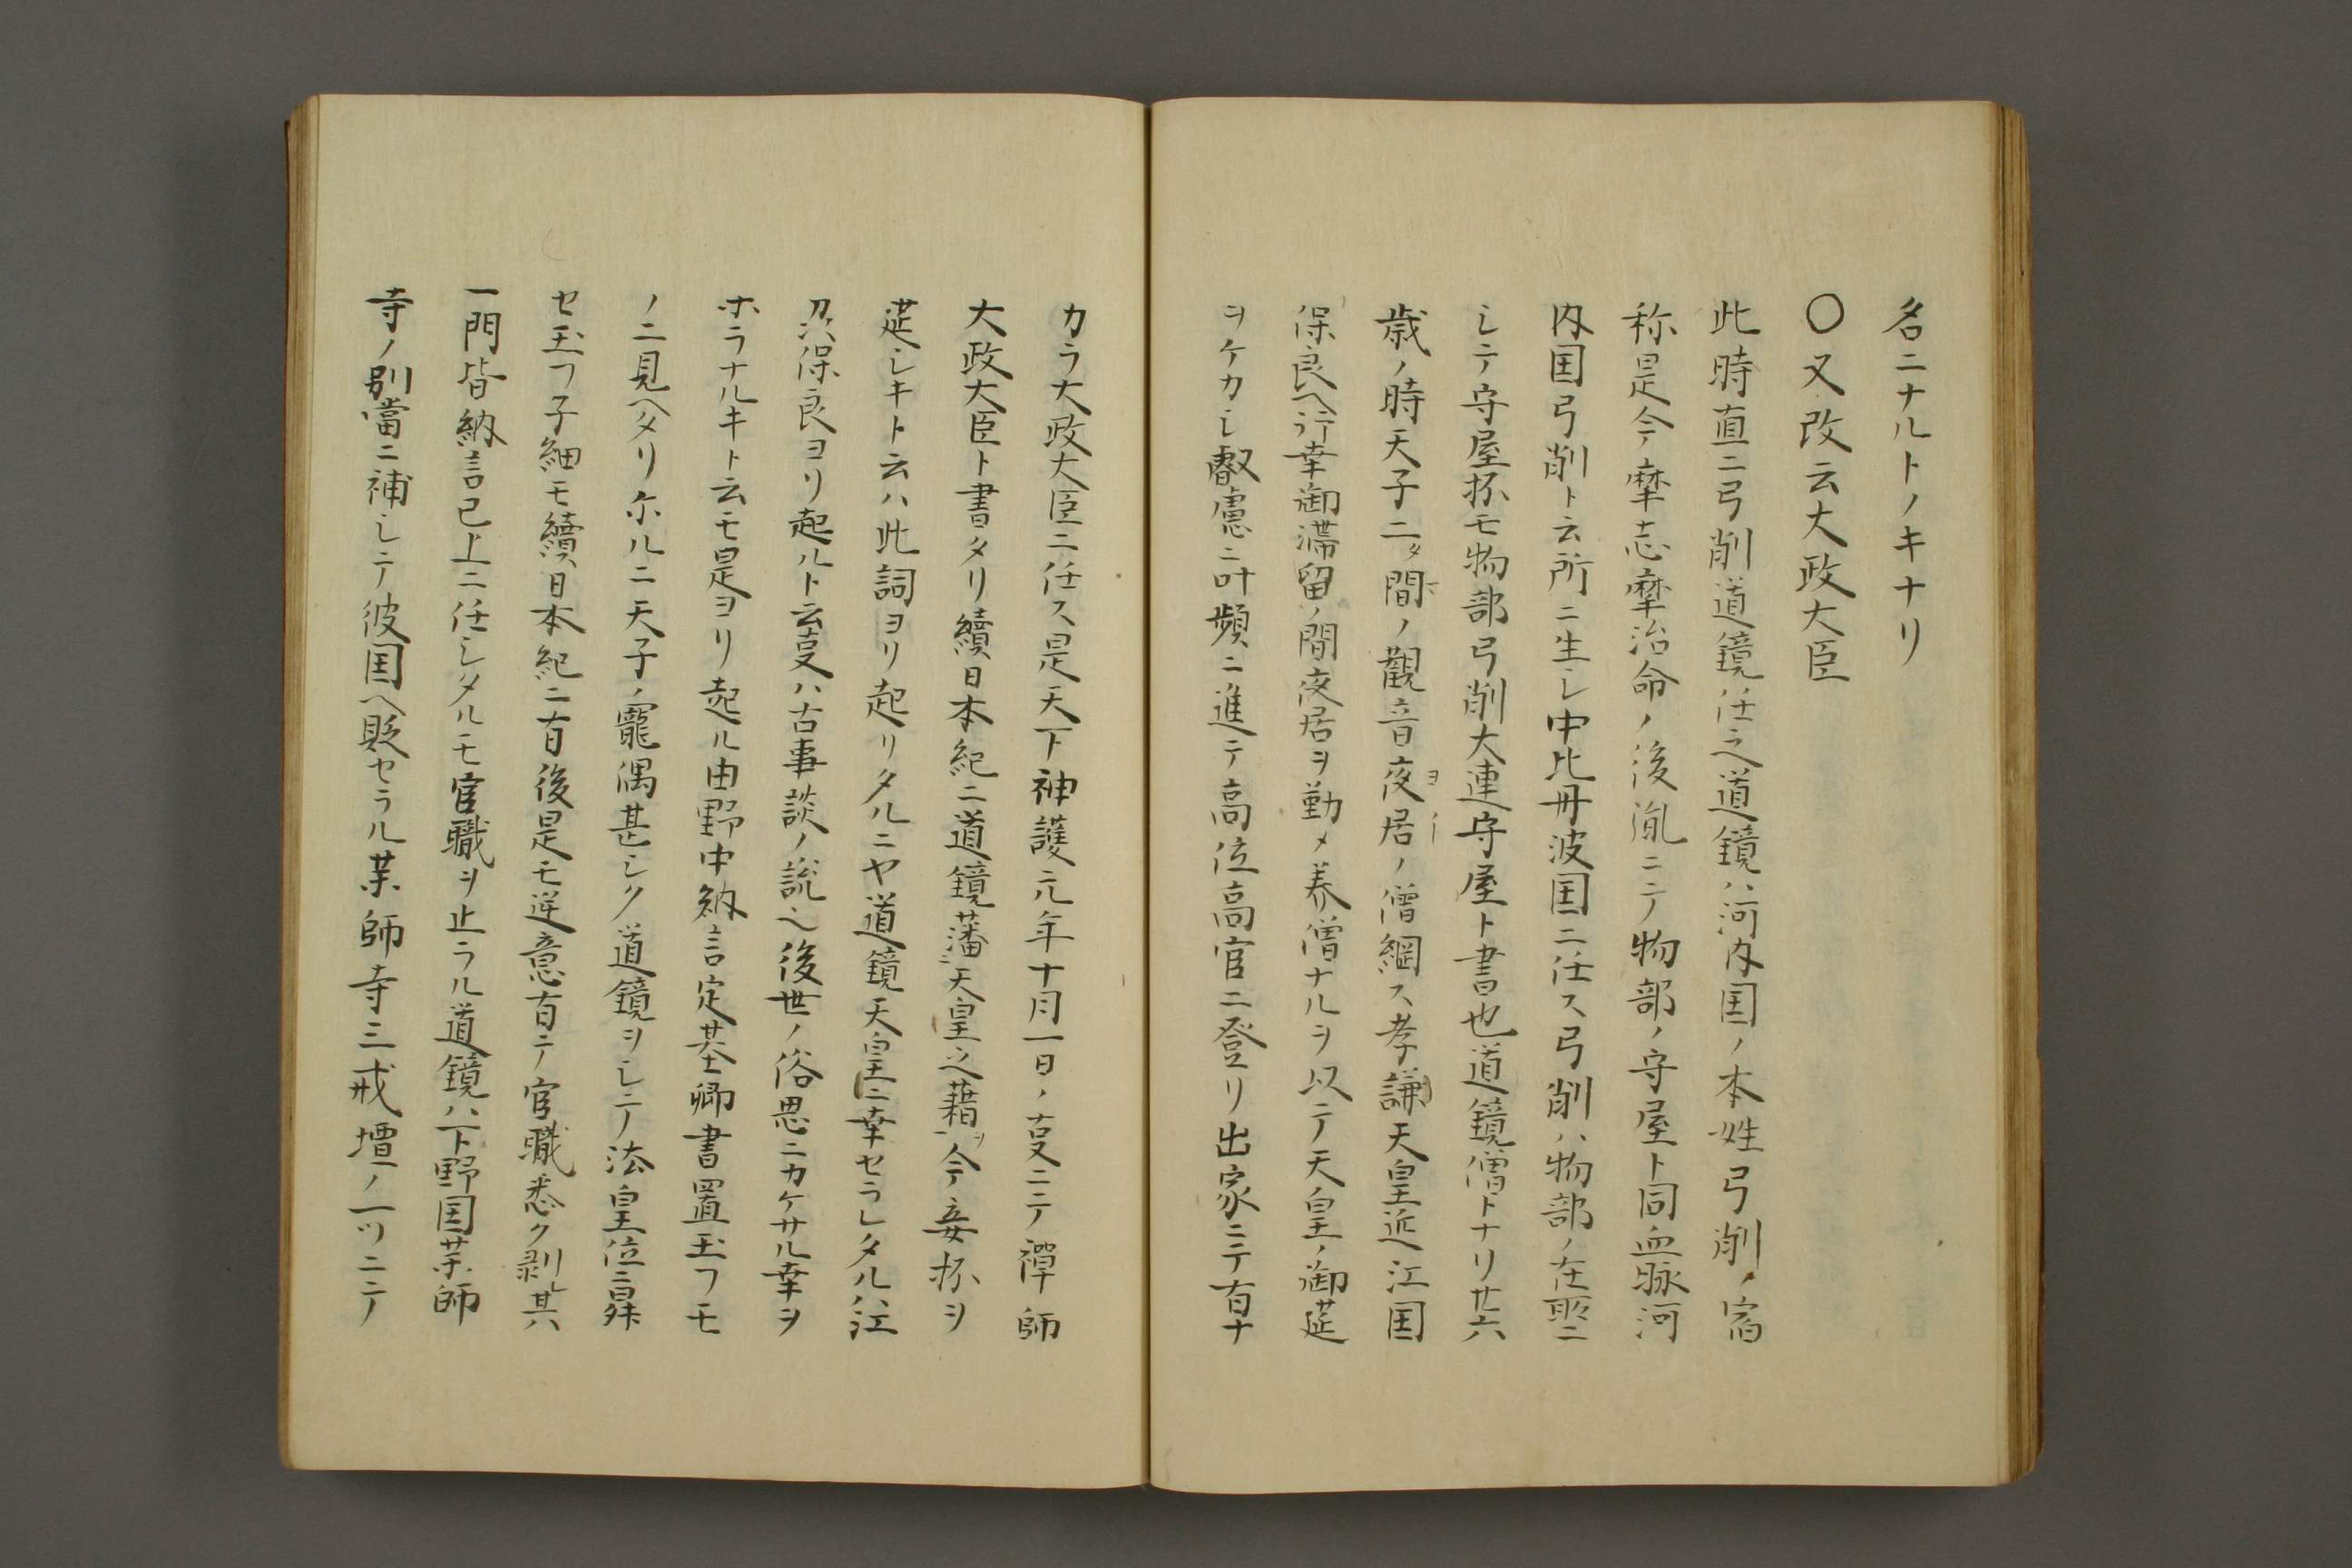 名ニナルトノキナリ
〇又改云大政大臣
此時直ニ弓削道鏡任之道鏡ハ河内国ノ本姓弓削ノ宿
称是今摩志摩治命ノ後胤ニテ物部ノ守屋ト同血脉河
内国弓削ト云所ニ生レ中比丹波国ニ任ス弓削ハ物部ノ在所ニ
シテ守屋抔モ物部弓削大連守屋ト書也道鏡僧トナリ廿六
歳ノ時天子二タ間ノ觀音夜居ノ僧綱ス孝謙天皇近江国
保良ヘ行幸御滞留ノ間夜居ヲ勤メ美僧ナルヲ以テ天皇ノ御莚
ヲケカシ叡慮ニ叶頻ニ進テ高位高官ニ登リ出家ニテ有ナ
カラ大政大臣ニ任ス是天下神護元年十月一日ノ㕝ニテ禪師
大政大臣ト書タリ續日本紀ニ道鏡藩天皇之藉ヲ今妾抔ヲ
莚シキト云ハ此詞ヨリ起リタルニヤ道鏡天皇ニ幸セラレタルハ江
刕保良ヨリ起ルト云㕝ハ古事談ノ説也後世ノ俗思ニカケサル幸ヲ
ホラナルキト云モ是ヨリ起ル由野中納言定基卿書置玉フモ
ノニ見ヘタリ尓ルニ天子ノ寵偶甚シク道鏡ヲシテ法皇位ニ昇
セ玉フ子細モ續日本紀ニ有後是モ逆意有テ官職悉ク剥レ其ハ
一門皆納言已上ニ任シタルモ官職ヲ止ラル道鏡ハ下野国茉師
寺ノ別當ニ補シテ彼国ヘ貶セラル茉師寺三戒壇ノ一ツニテ